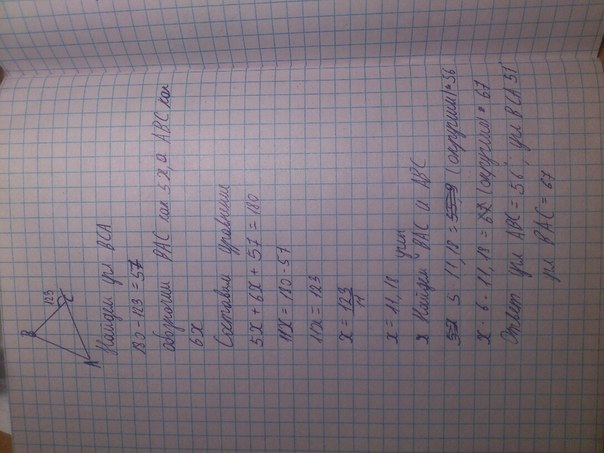 B
123
C
A
Найдем угл BCA
180-123=57
обозначим BAC как 5x, а ABC как
6x
Составим уравнение
5x+6x+57=180
11x=180-57
11x=123
x=123/11
x=11,18
Найдем углы BAC и ABC
5 11,18 = 55,9 (округлим) = 56
x - 6 - 11,18 = 67 (округлим) = 67
Ответ угл ABC = 56, угл BCA 57
угл BAC = 67